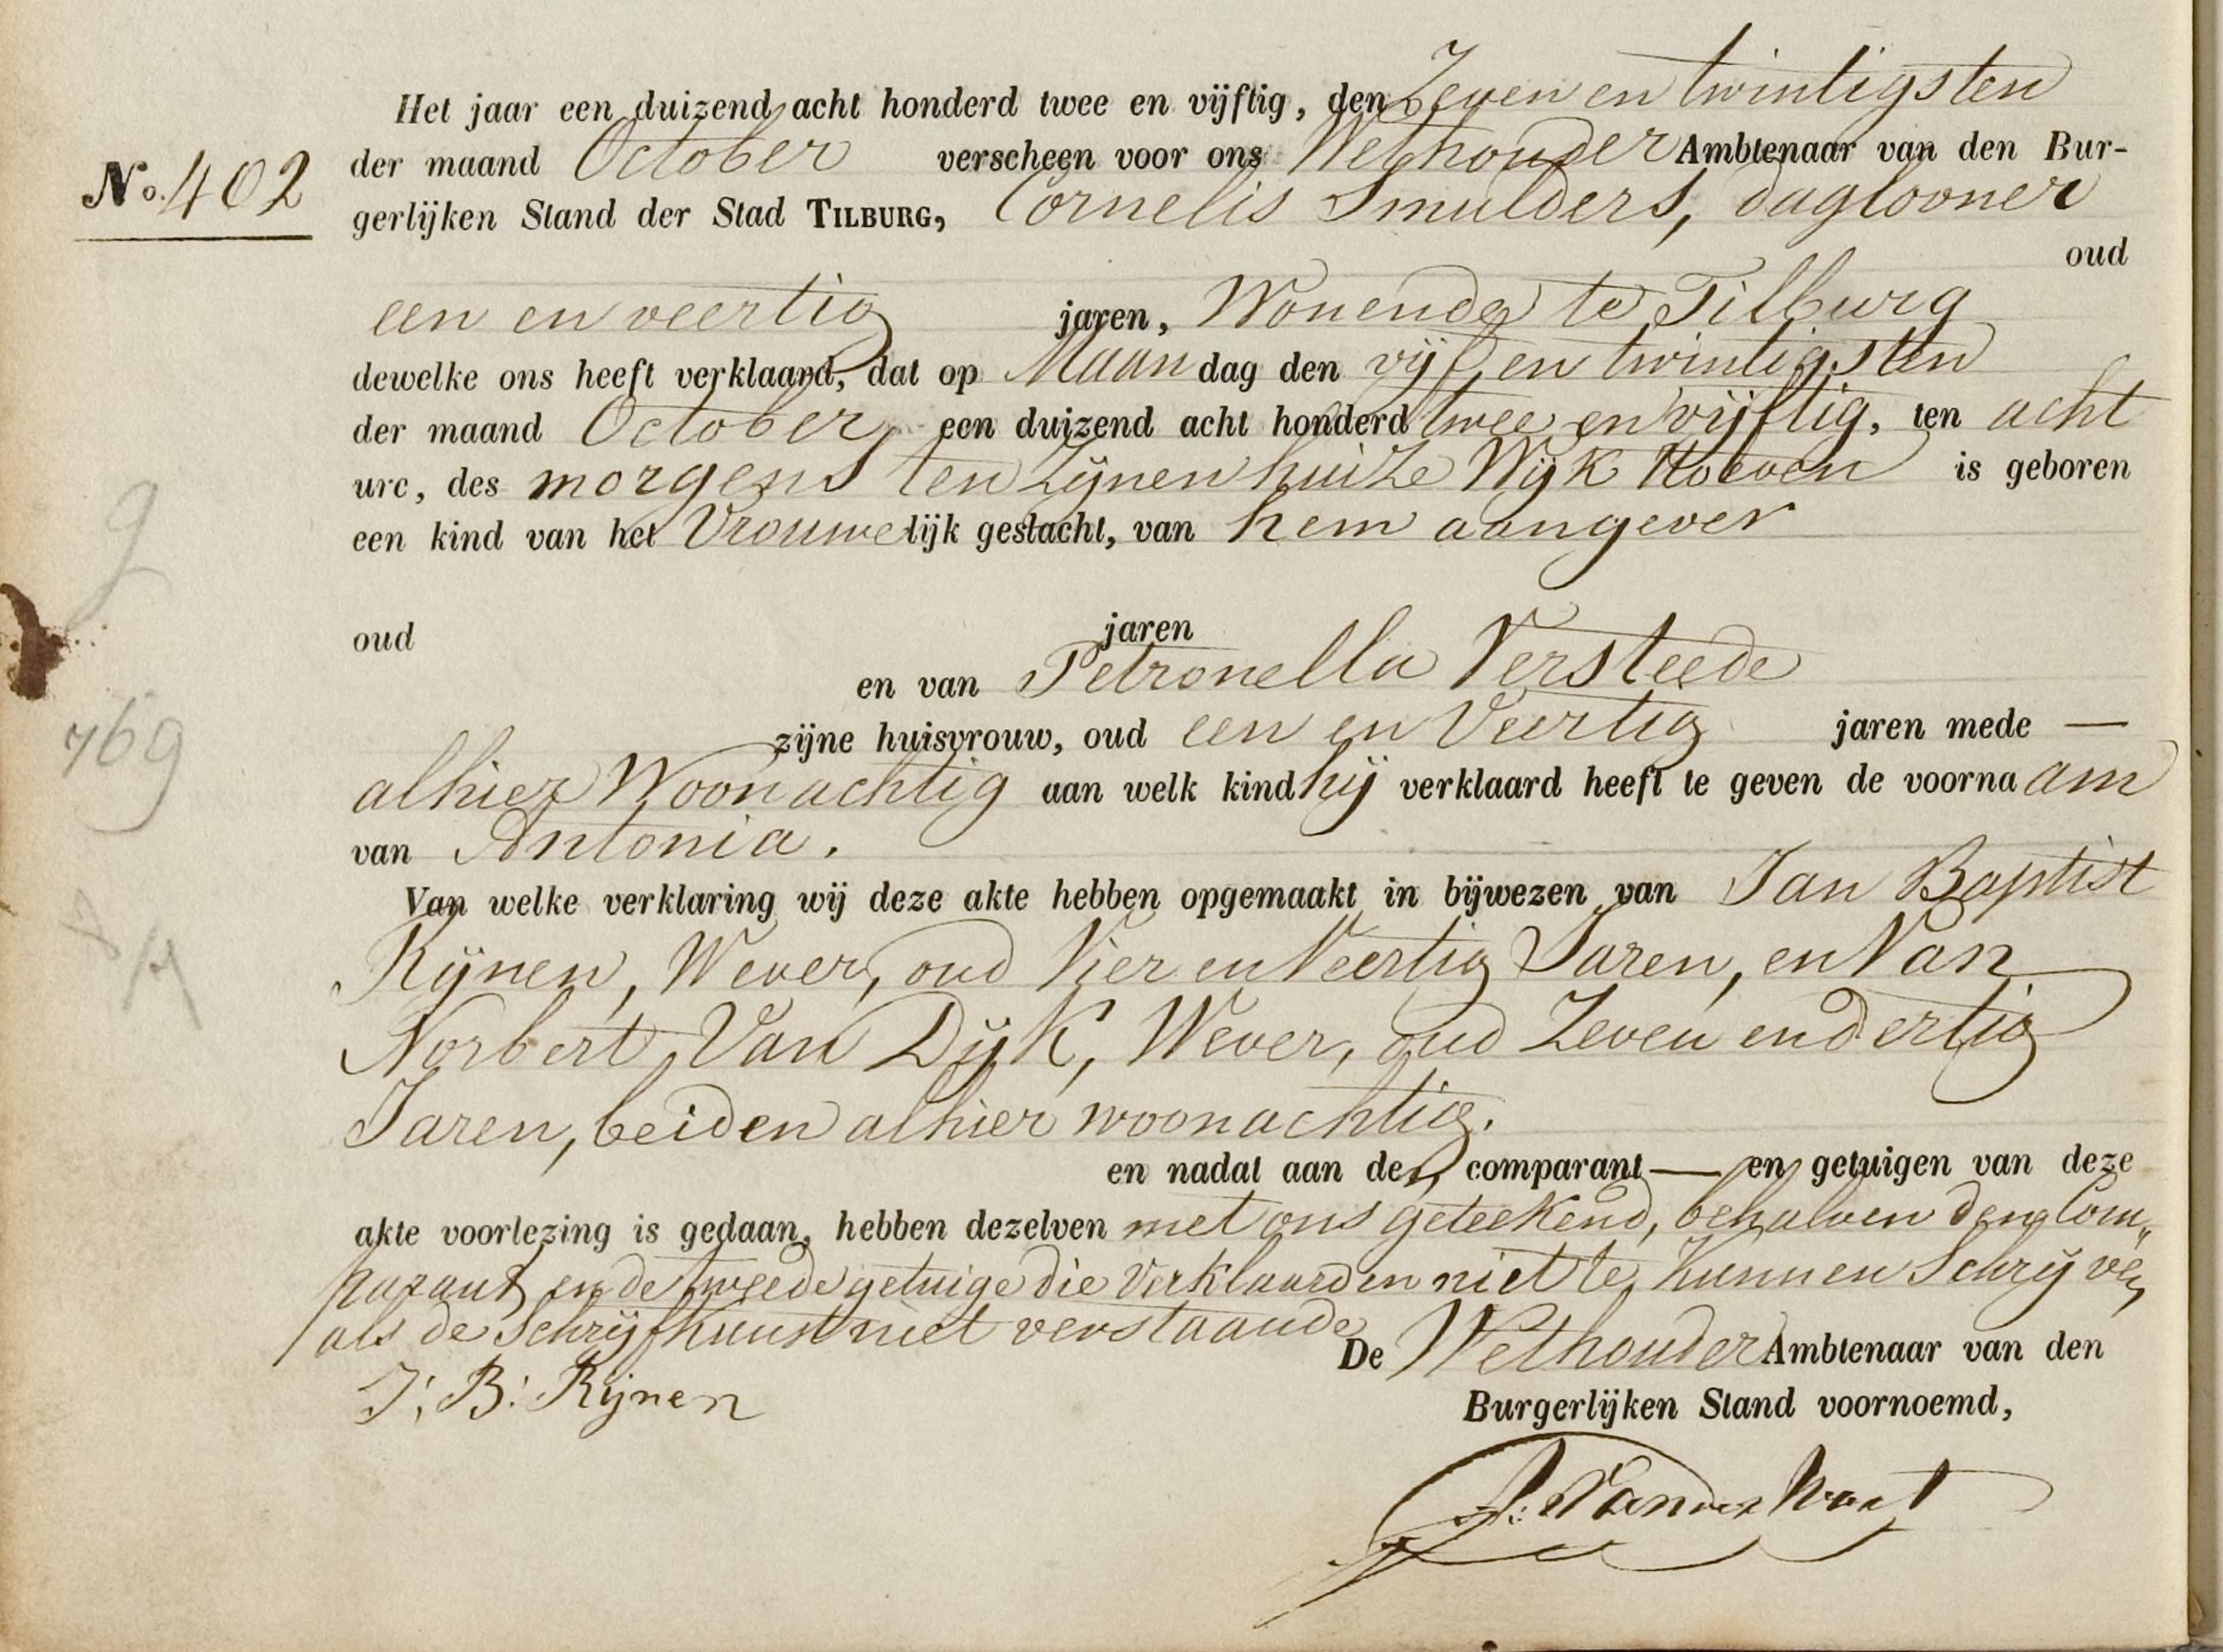 Het jaar een duizend acht honderd twee en vijftig, den Zeven en twintigsten
No. 402
der maand October verscheen voor ons Wethouder Ambtenaar van den Bur-
gerlijken Stand der Stad TILBURG, Cornelis Smulders, daglooner
oud
een en veertig jaren, Wonende te Tilburg
dewelke ons heeft verklaard, dat op Maandag den vijf en twintigsten
der maand October een duizend acht honderd twee en vijftig, ten acht
ure, des morgens ten zijnen huize Wijk Hoeven is geboren
een kind van het Vrouwelijk geslacht, van hem aangever
oud jaren
en van Petronella Versteede
zijne huisvrouw, oud een en Veertig jaren mede —
769
alhier Woonachtig aan welk kind hij verklaard heeft te geven de voornaam
van Antonia.
Van welke verklaring wij deze akte hebben opgemaakt in bijwezen van Jan Baptist
Rijnen, Wever, oud Vier en Veertig Jaren, en Van
Norbert Van Dijk, Wever, oud Zeven en dertig
Jaren, beiden alhier woonachtig.
en nadat aan den comparant — en getuigen van deze
akte voorlezing is gedaan, hebben dezelven met ons geteekend, behalven den Com„
parant en de tweede getuige die Verklaarden niet te kunnen Schrijven
als de Schrijfkunst niet verstaande
De Wethouder Ambtenaar van den
J: B: Rijnen
Burgerlijken Stand voornoemd,